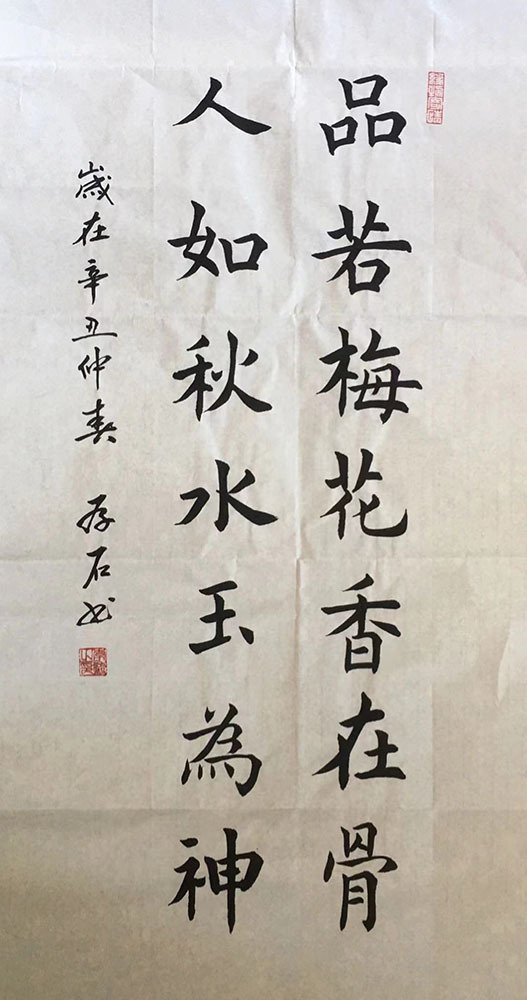 品若梅花香在骨
人如秋水玉為神
歲在辛丑仲春 存石书